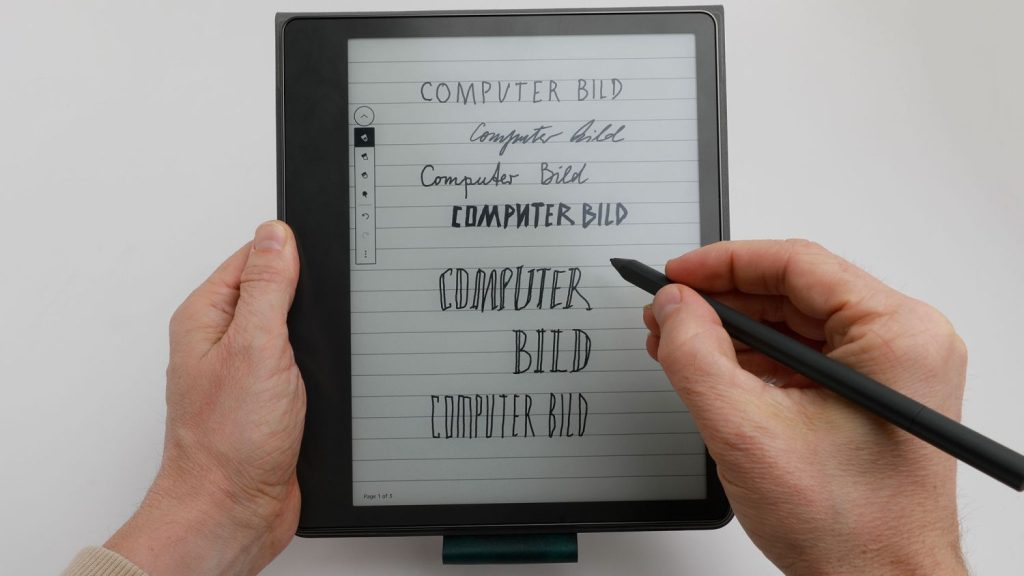 COMPUTER BILD
Computer Bild
Computer Bild
COMPUTER BILD
COMPUTER
BILD
COMPUTER BILD
Page 1 of 3